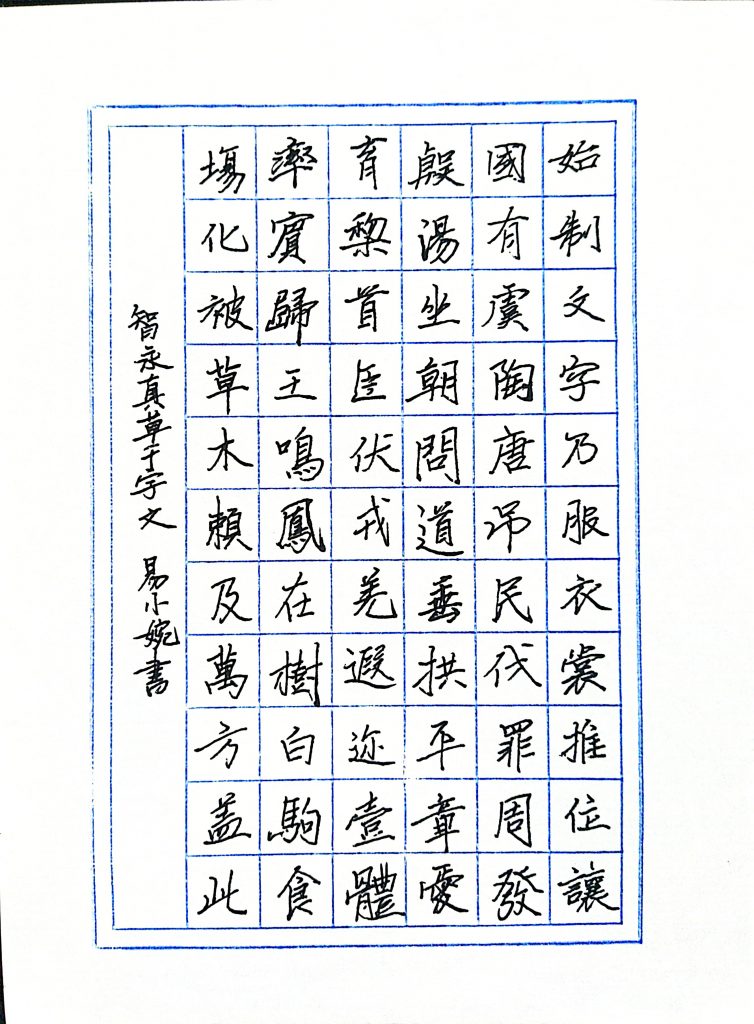 始制文字乃服衣裳推位讓
國有虞陶唐吊民伐罪周發
殷湯坐朝問道垂拱平章愛
育黎首臣伏戎羌遐迩壹體
率賓歸王鳴鳳在樹白駒食
場化被草木賴及萬方蓋此
智永真草千字文 易小婉書